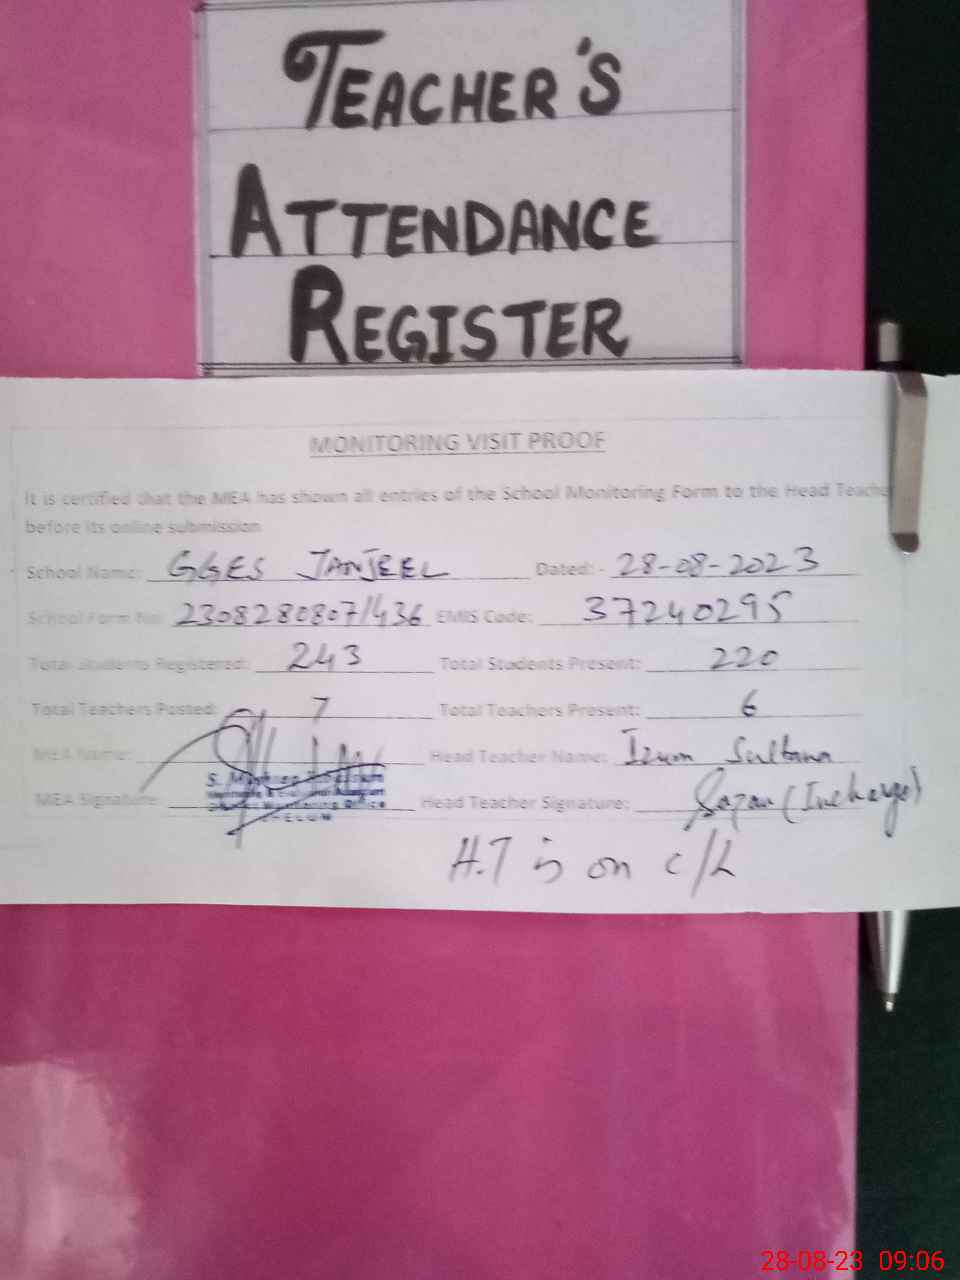 TEACHER'S
ATTENDANCE
REGISTER
MONITORING VISIT PROOF
It is certified that the MEA has shown all entries of the School Monitoring Form to the Head Teacher
before its online submission
School Name: GGES JANJEEL Dated: - 28-08-2023
School Form No: 2308280807/436 EMIS Code: 37240295
Total Students Registered: 243 Total Students Present: 220
Total Teachers Posted: 7 Total Teachers Present: 6
MEA Name: Head Teacher Name: Izum Sultana
MEA Signature: Head Teacher Signature: (Incharge)
S.
Monitoring Office
JHELUM
H.T is on c/L
28-08-23 09:06